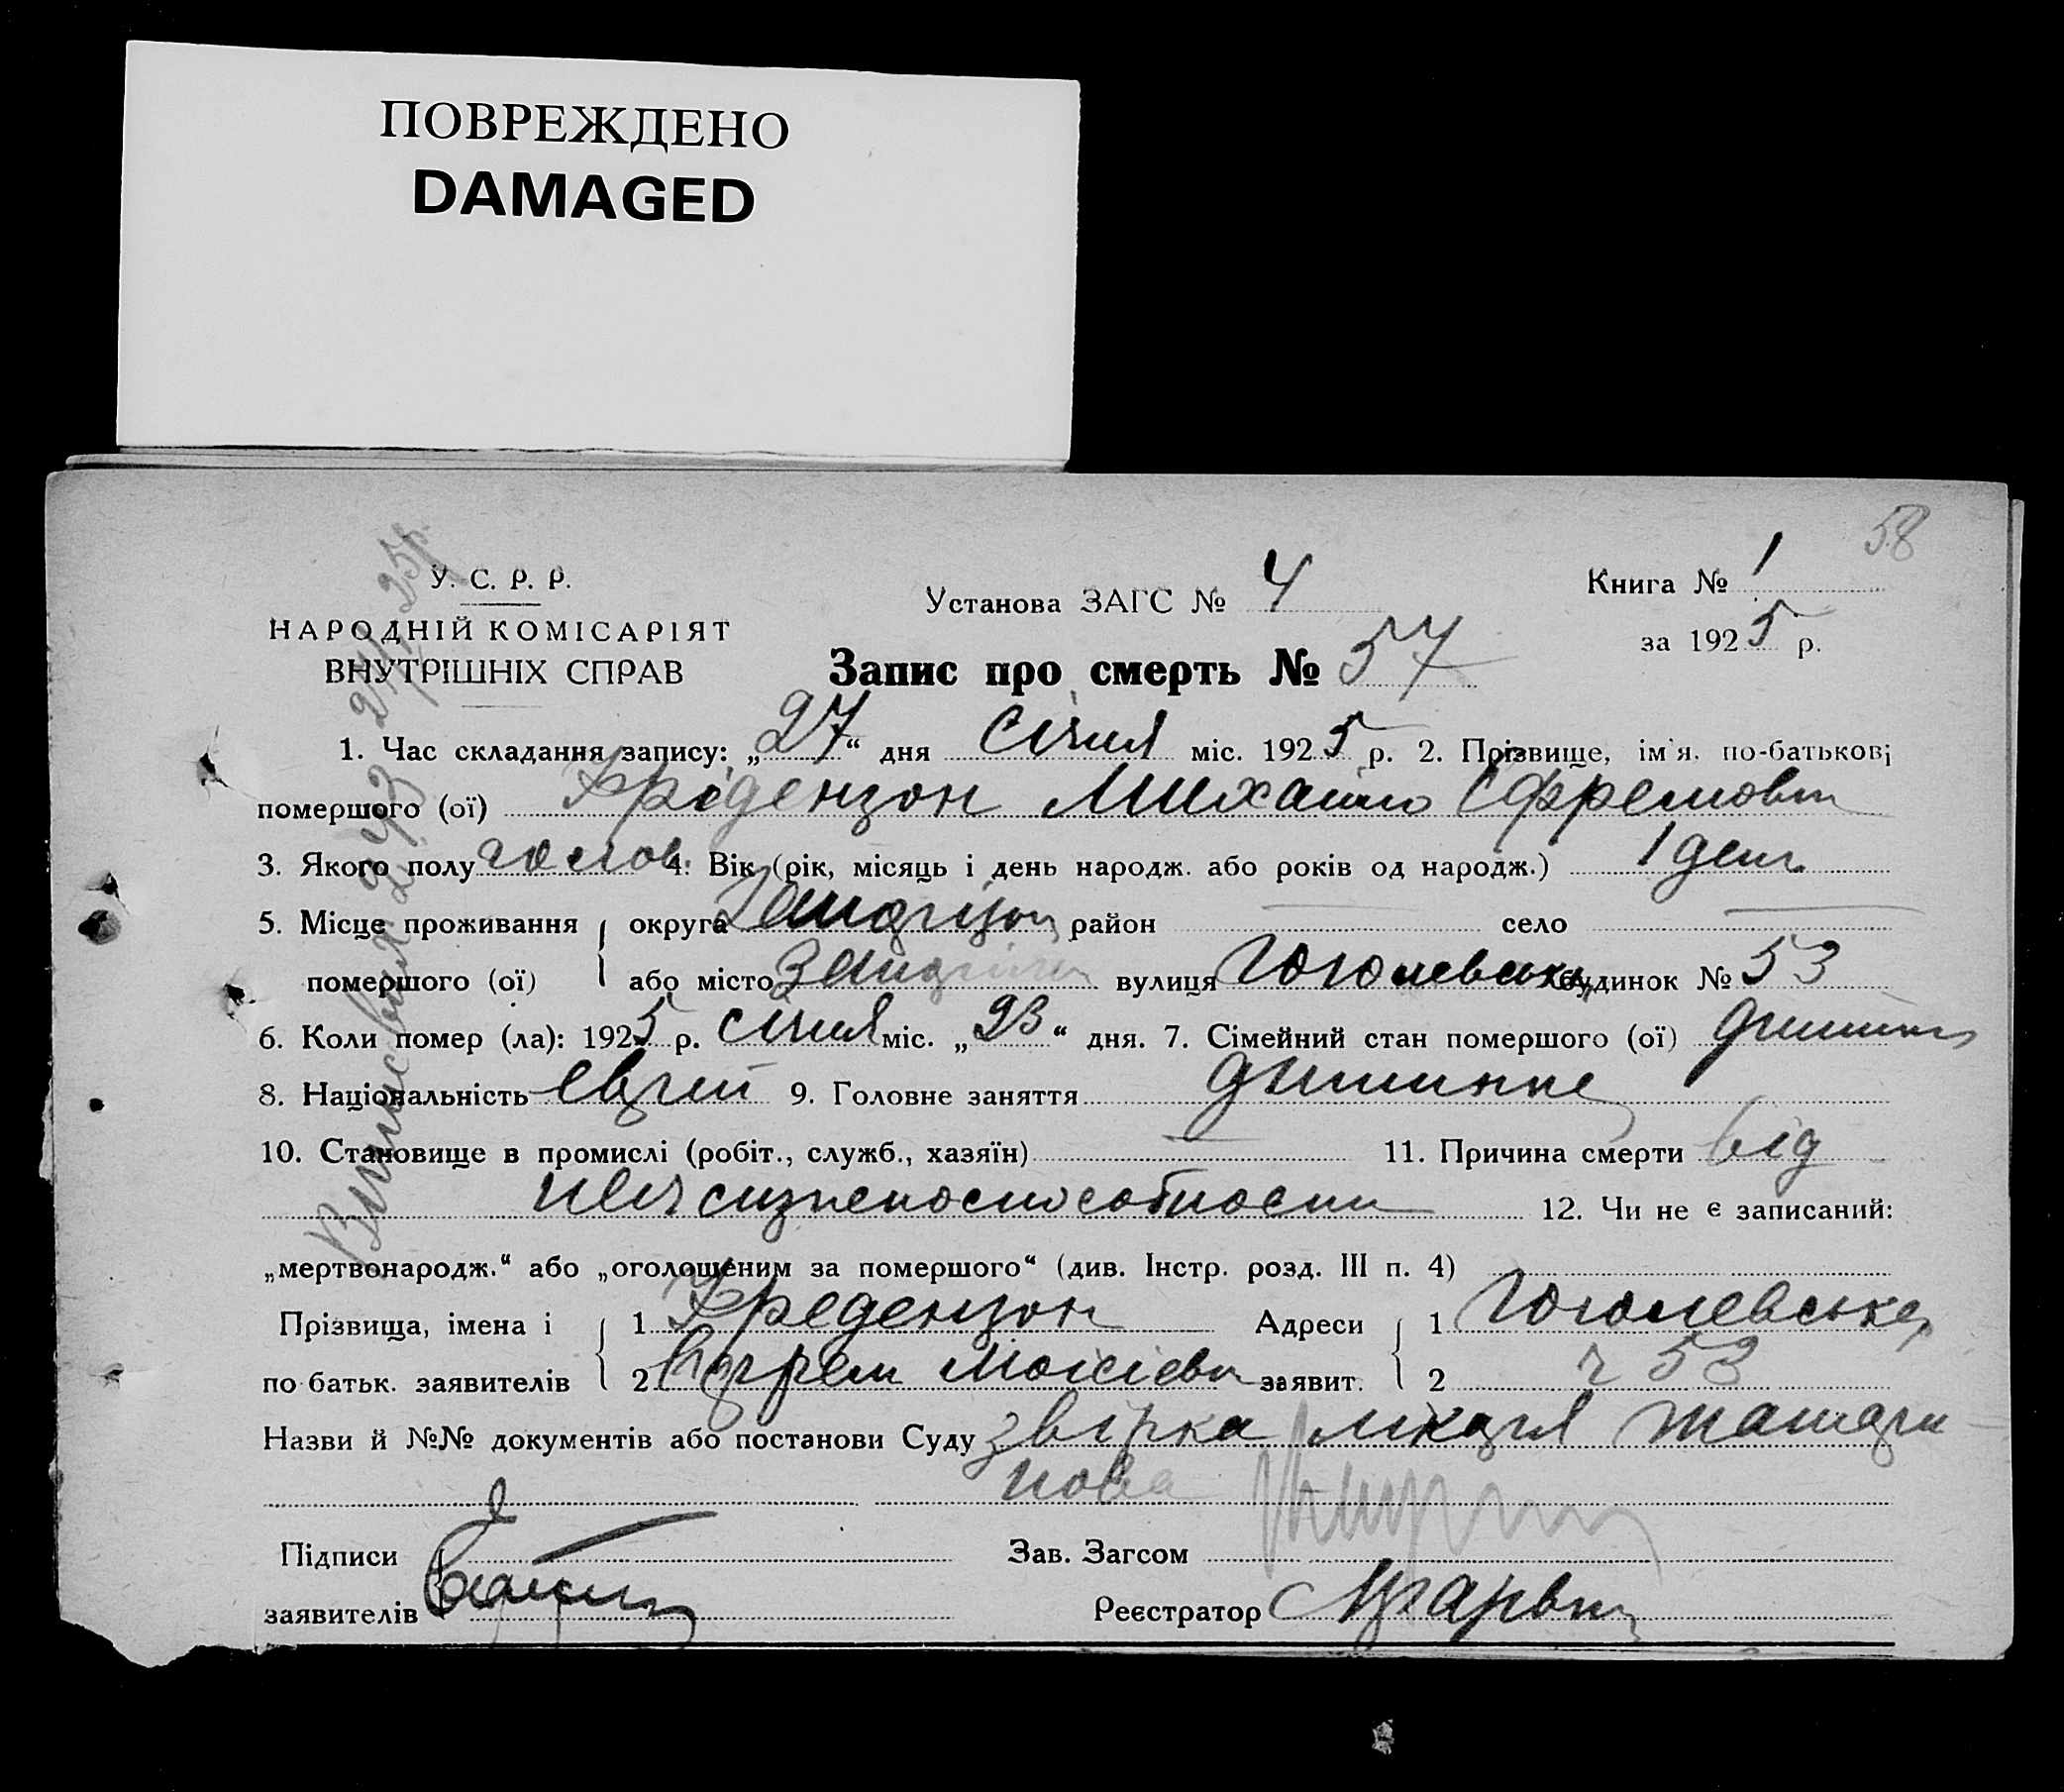 ПОВРЕЖДЕНО
DAMAGED
58
У. С. Р. Р.
НАРОДНІЙ КОМІСАРІЯТ
ВНУТРІШНІХ СПРАВ
Установа ЗАГС № 4
Книга № 1
за 1925 р.
Запис про смерть № 57
1. Час складання запису: „27“ дня Січня міс. 1925 р. 2. Прізвище, ім'я. по-батькові
помершого (ої) Фрідензон Михайло Єфремович
3. Якого полу 4. Вік (рік, місяць і день народж. або років од народж.) 1 день
5. Місце проживання округа район село
помершого (ої) або місто вулиця Гоголевська будинок № 53
6. Коли помер (ла): 1925 р. Січня міс. „23“ дня. 7. Сімейний стан помершого (ої) дитина
8. Національність Еврей 9. Головне заняття
10. Становище в промислі (робіт., служб., хазяїн) 11. Причина смерти від
12. Чи не є записаний:
„мертвонародж.“ або „оголошеним за помершого“ (див. Інстр. розд. III п. 4)
Прізвища, імена і 1 Фредензон Адреси 1 Гоголевська
по батьк. заявителів 2 Мойсієвич заявит. 2 53
Назви й №№ документів або постанови Суду
Підписи Зав. Загсом
заявителів Реєстратор